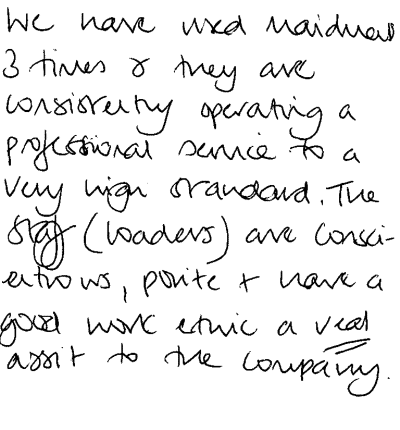 We have used Maidmans
3 times & they are
consistently operating a
professional service to a
very high standard. The
staff (loaders) are consci-
entious, polite + have a
good work ethic a real
assit to the company.